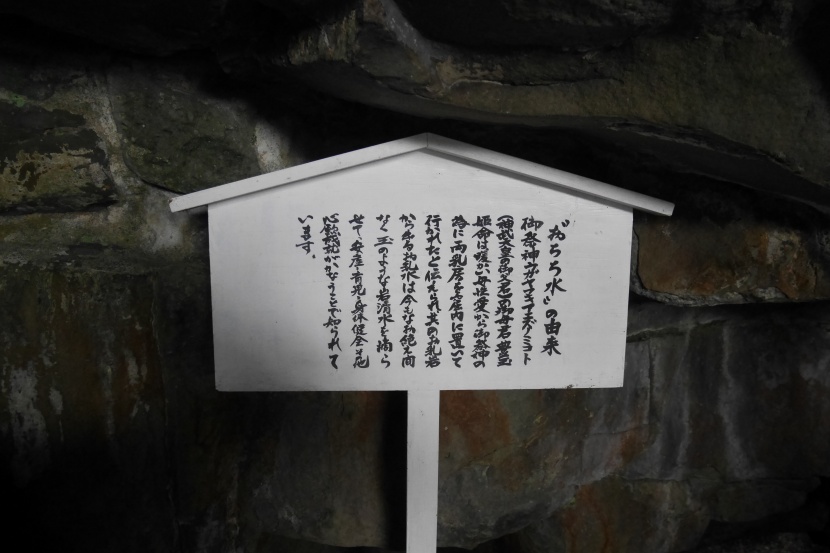 "おちち水"の由来
御祭神ウガヤフキアエズノミコト
(神武天皇の御父君)の御母君、豊玉
姫命は暖い母性愛から御祭神の
為に両乳房を窟内に置いて
行かれたと伝えられ其のお乳岩
から出るお乳水は今もなお絶え間
なく玉のような岩清水を滴ら
せて安産・育児・身体健全・其他
心願成就がかなうことで知られて
います。